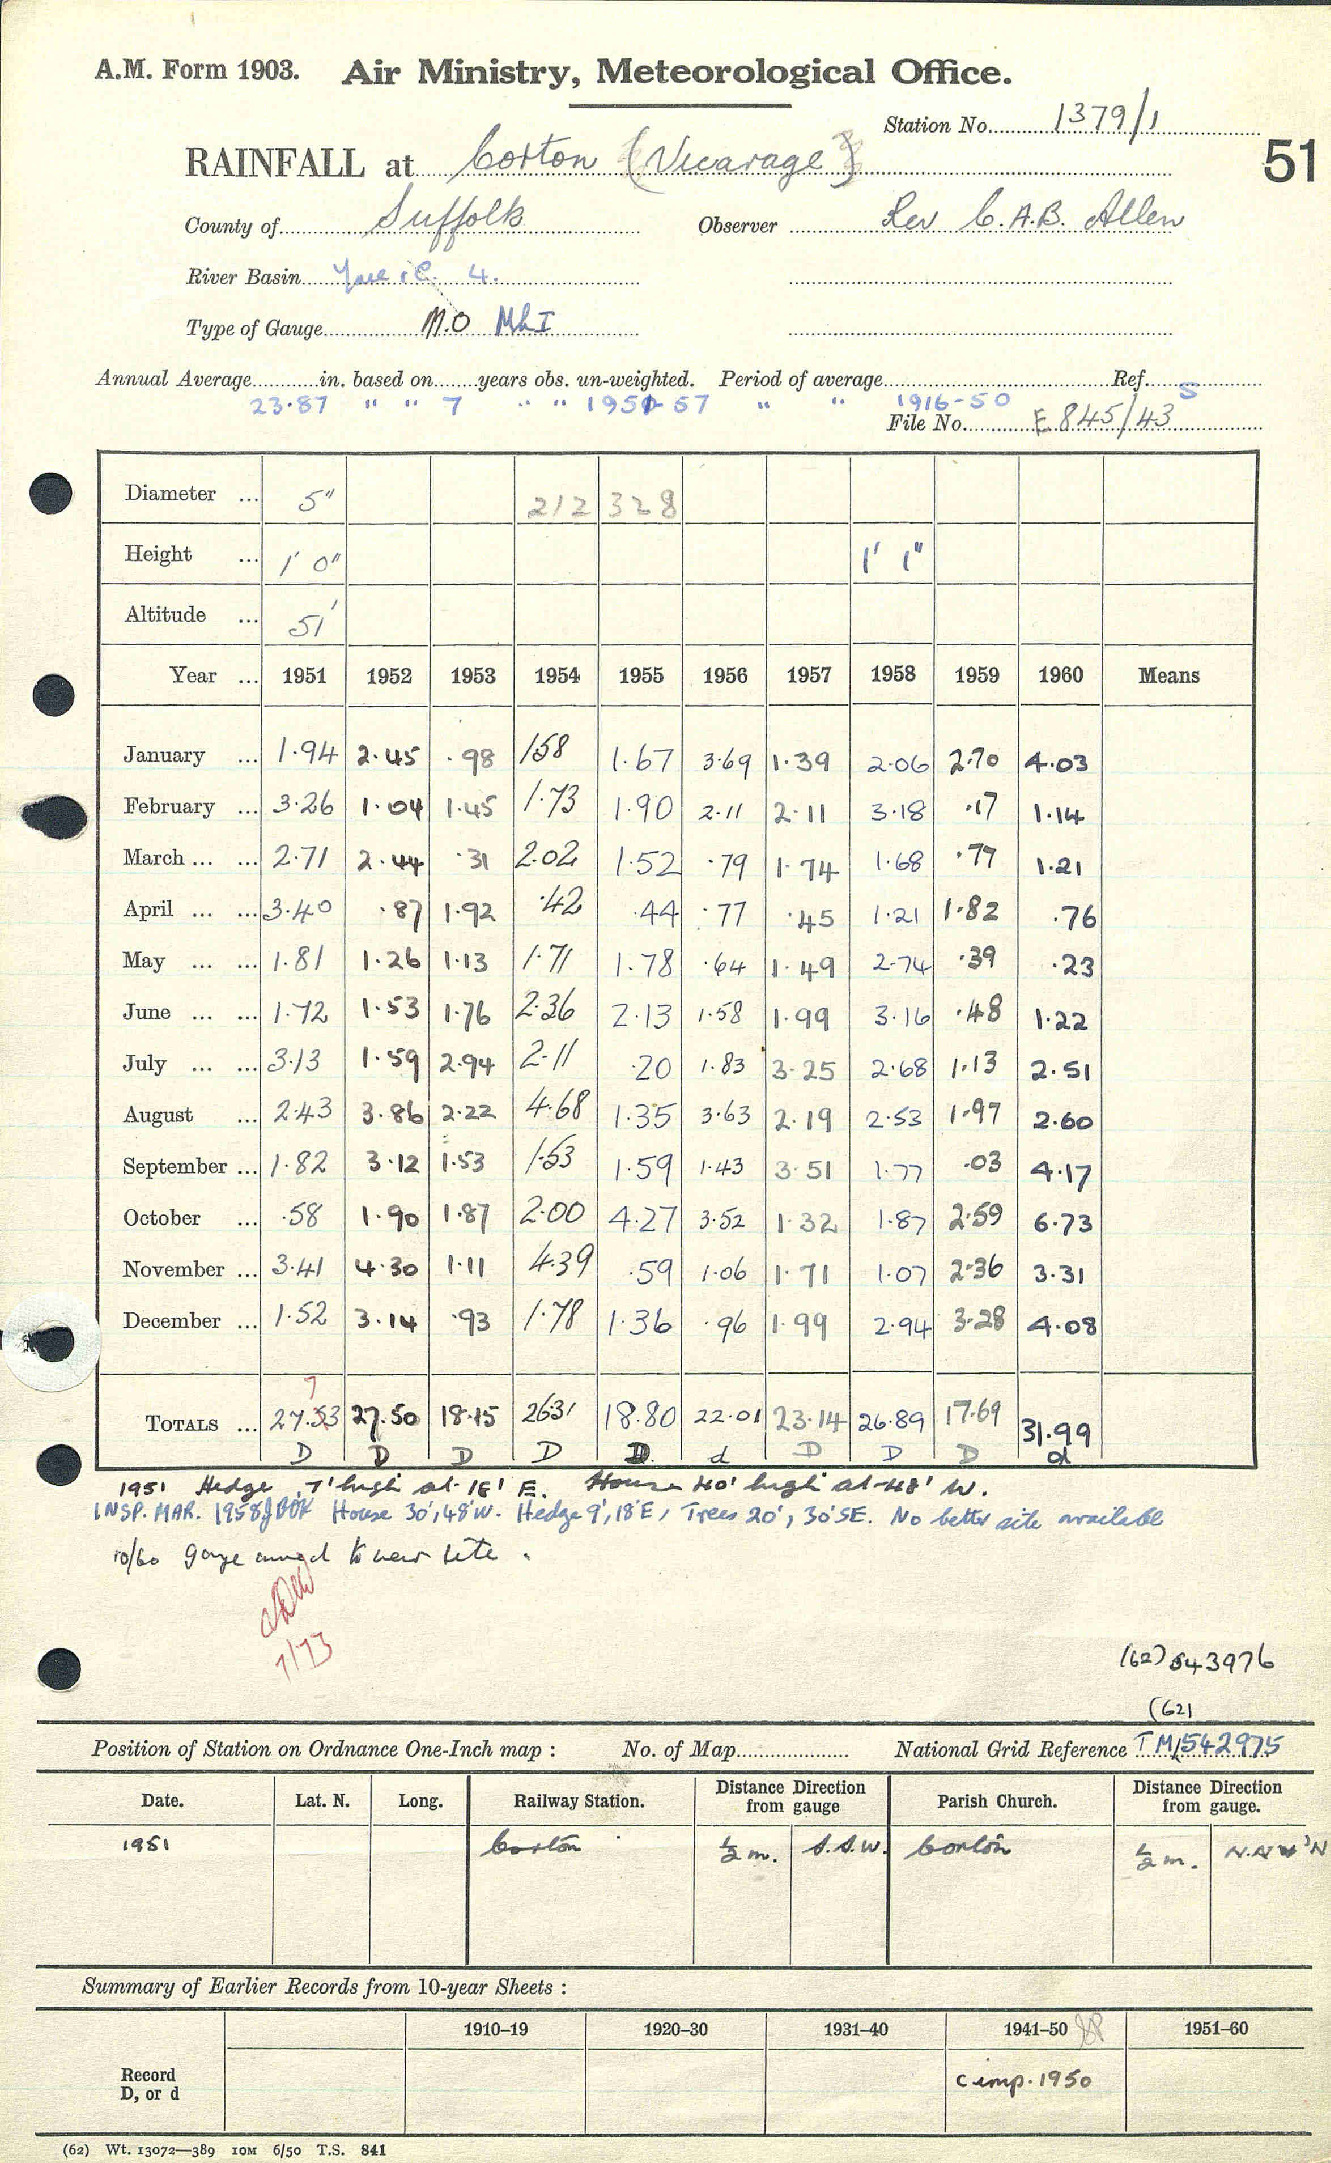 A.M. Form 1903. Air Ministry, Meteorological Office.
Station No. 1379/1
RAINFALL at Corton (Vicarage)
51
County of Suffolk Observer Rev C.A.B. Allen
River Basin Yare &c. 4.
Type of Gauge M.O Mk I
Annual Average in. based on years obs. un-weighted. Period of average Ref. S
23.87 " " 7 " " 1951-57 " " 1916-50
File No. E 845/43
Diameter ... 5" 212 328
Height ... 1' 0" 1' 1"
Altitude ... 51'
Year ... 1951 1952 1953 1954 1955 1956 1957 1958 1959 1960 Means
January ... 1.94 2.45 .98 1.58 1.67 3.69 1.39 2.06 2.70 4.03
February ... 3.26 1.04 1.45 1.73 1.90 2.11 2.11 3.18 .17 1.14
March ... ... 2.71 2.44 .31 2.02 1.52 .79 1.74 1.68 .77 1.21
April ... ... 3.40 .87 1.92 .42 .44 .77 .45 1.21 1.82 .76
May ... ... 1.81 1.26 1.13 1.71 1.78 .64 1.49 2.74 .39 .23
June ... ... 1.72 1.53 1.76 2.36 2.13 1.58 1.99 3.16 .48 1.22
July ... ... 3.13 1.59 2.94 2.11 .20 1.83 3.25 2.68 1.13 2.51
August ... 2.43 3.86 2.22 4.68 1.35 3.63 2.19 2.53 1.97 2.60
September ... 1.82 3.12 1.53 1.53 1.59 1.43 3.51 1.77 .03 4.17
October ... .58 1.90 1.87 2.00 4.27 3.52 1.32 1.87 2.59 6.73
November ... 3.41 4.30 1.11 4.39 .59 1.06 1.71 1.07 2.36 3.31
December ... 1.52 3.14 .93 1.78 1.36 .96 1.99 2.94 3.28 4.08
7
TOTALS ... 27.53 27.50 18.15 26.31 18.80 22.01 23.14 26.89 17.69 31.99
D D D D D d D D D d
1951 Hedge 7' high at 18' E. House 40' high at 48' W.
INSP. MAR. 1958 House 30', 48'W. Hedge 9', 18'E, Trees 20', 30'SE. No better site available
10/60 gauge moved to new site.
7/73
(62) 543976
(62)
Position of Station on Ordnance One-Inch map : No. of Map National Grid Reference TM/542975
Date. Lat. N. Long. Railway Station. Distance Direction from gauge Parish Church. Distance Direction from gauge.
1951 Corton ½ m. S.S.W. Corton ½ m. N.N.W'N
Summary of Earlier Records from 10-year Sheets :
1910–19 1920–30 1931–40 1941–50 1951–60
Record
D, or d
c imp. 1950
(62) Wt. 13072—389 10M 6/50 T.S. 841